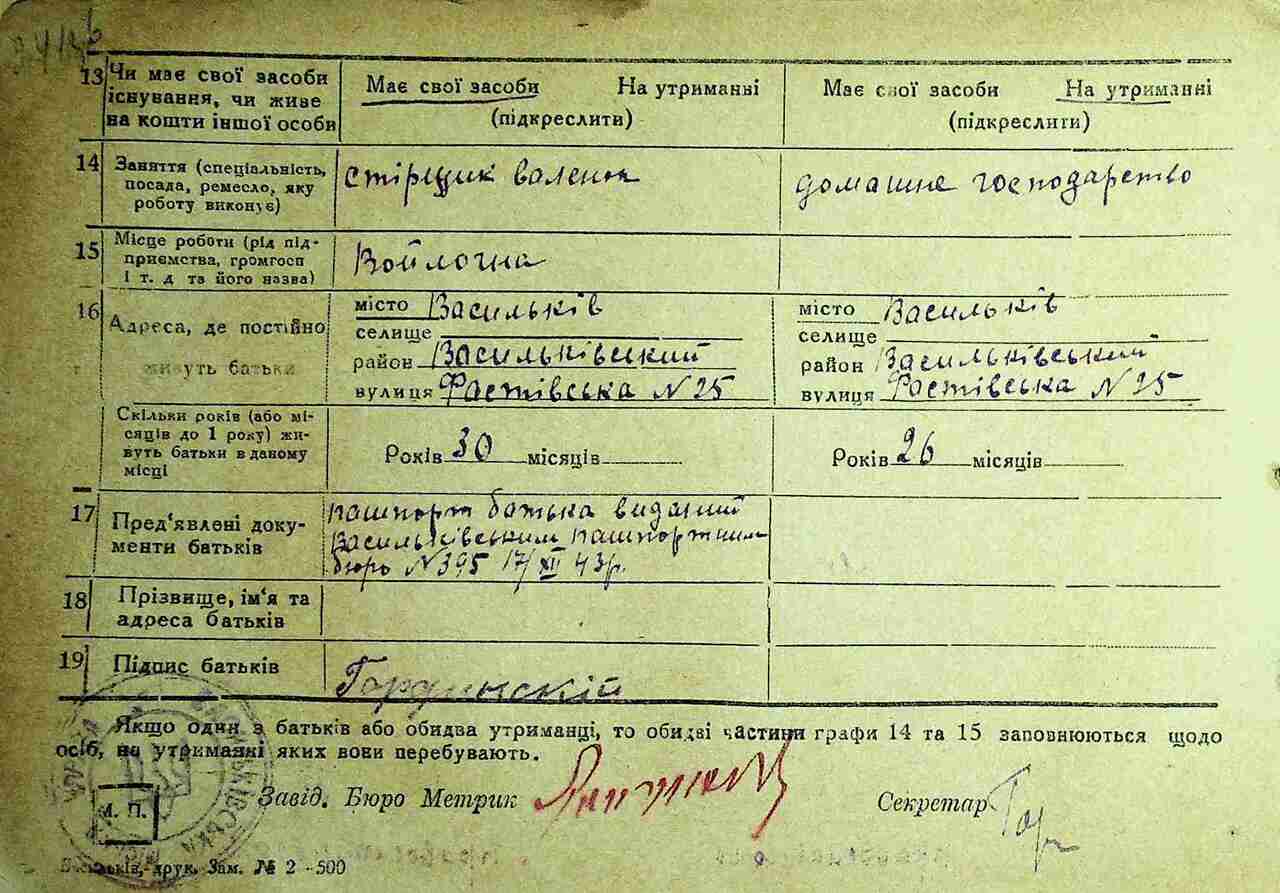 13 Чи має свої засоби існування, чи живе на кошти іншої особи
Має свої засоби На утриманні
(підкреслити)
Має свої засоби На утриманні
(підкреслити)
14 Заняття (спеціальність, посада, ремесло, яку роботу виконує)
стірщик валенок
домашне господарство
15 Місце роботи (рід підприємства, громгосп і т. д та його назва)
Войлочна
16 Адреса, де постійно живуть батьки
місто Васильків
селище
район Васильківский
вулиця Фастівська N 25
місто Васильків
селище
район Васильківським
вулиця Фастівська N 25
Скільки років (або місяців до 1 року) живуть батьки в даному місці
Років 30 місяців
Років 26 місяців
17 Пред'явлені документи батьків
пашпорт батька виданий
Васильківським пашпортним
бюро N 395 17/XII 43р.
18 Прізвище, ім'я та адреса батьків
19 Підпис батьків
Якщо один з батьків або обидва утриманці, то обидві частини графи 14 та 15 заповнюються щодо
осіб, на утриманні яких вони перебувають.
М. П.
Завід. Бюро Метрик
Секретар
Васильків, друк. Зам. № 2 - 500